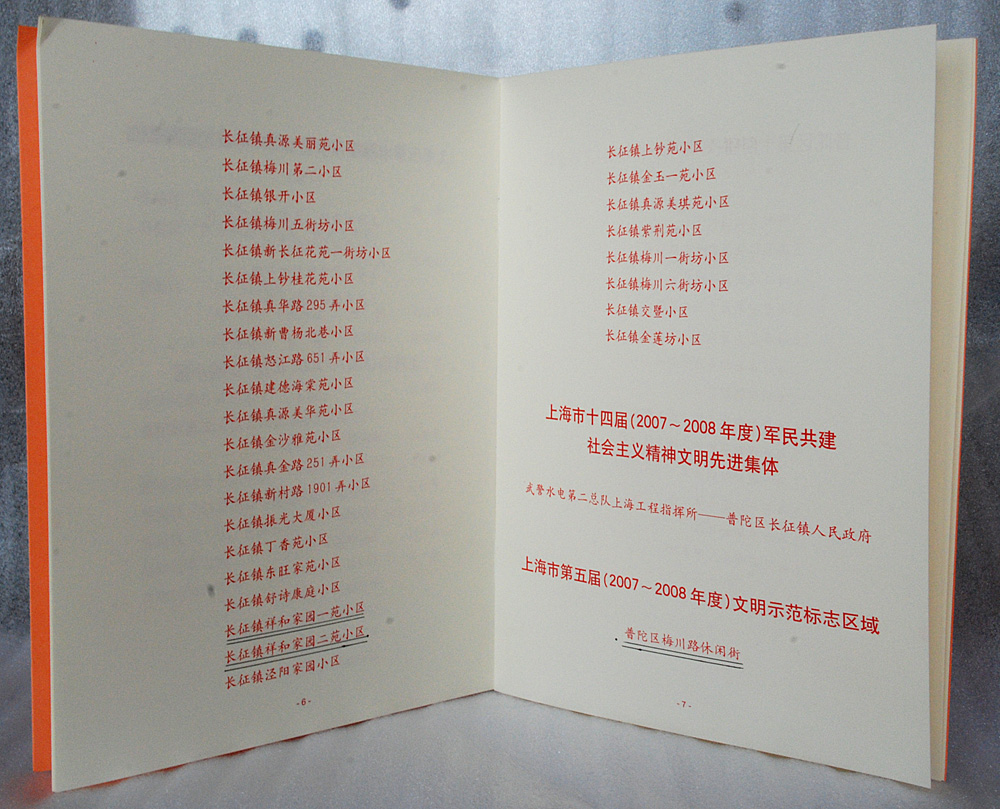 长征镇真源美丽苑小区
长征镇梅川第二小区
长征镇银开小区
长征镇梅川五街坊小区
长征镇新长征花苑一街坊小区
长征镇上钞桂花苑小区
长征镇真华路295弄小区
长征镇新曹杨北巷小区
长征镇怒江路651弄小区
长征镇建德海棠苑小区
长征镇真源美华苑小区
长征镇金沙雅苑小区
长征镇真金路251弄小区
长征镇新村路1901弄小区
长征镇振光大厦小区
长征镇丁香苑小区
长征镇东旺家苑小区
长征镇舒诗康庭小区
长征镇祥和家园一苑小区
长征镇祥和家园二苑小区
长征镇泾阳家园小区
-6-
长征镇上钞苑小区
长征镇金玉一苑小区
长征镇真源美琪苑小区
长征镇紫荆苑小区
长征镇梅川一街坊小区
长征镇梅川六街坊小区
长征镇交暨小区
长征镇金莲坊小区
上海市十四届(2007～2008年度)军民共建
社会主义精神文明先进集体
武警水电第二总队上海工程指挥所——普陀区长征镇人民政府
上海市第五届(2007～2008年度)文明示范标志区域
普陀区梅川路休闲街
-7-